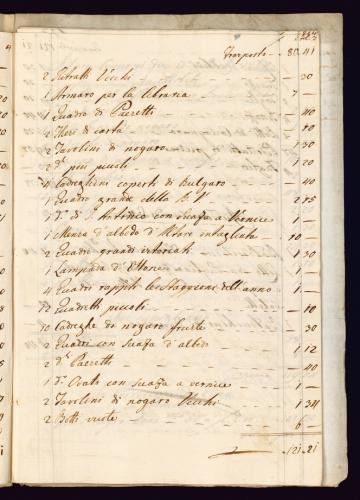 Trasporto - 80 41
2 Ritratti Vecchi - 30
1 Armaro per la libraria 7 -
Quadro di Paesetti - 40
2 Fiori di carta
2 Tavolini di nogaro 1 30
2 d.i più piccoli 1 20
Cadreghini coperti di Bulgaro - 40
1 Quadro grande della B. V.
1 d.o di S. Antonio con Suasa a Vernice 1 -
1 Mensa d'albedo d'Altare intagliata 10 -
2 Quadri grandi istoriati 1 30
1 Lampada d'Ottone 1 -
4 Quadri rappti le Staggione dell'anno 1 -
12 Quadretti piccoli - 10
10 Cadreghe di nogaro fruste - 30
2 Quadri con Suasa d'albedo 1 12
2 d.i Paesetti - 40
1 d.o Ovato con Suasa a vernice 1 -
2 Tavolini di nogaro Vecchi 1 34
2 Botti vuote 6 -
121 21